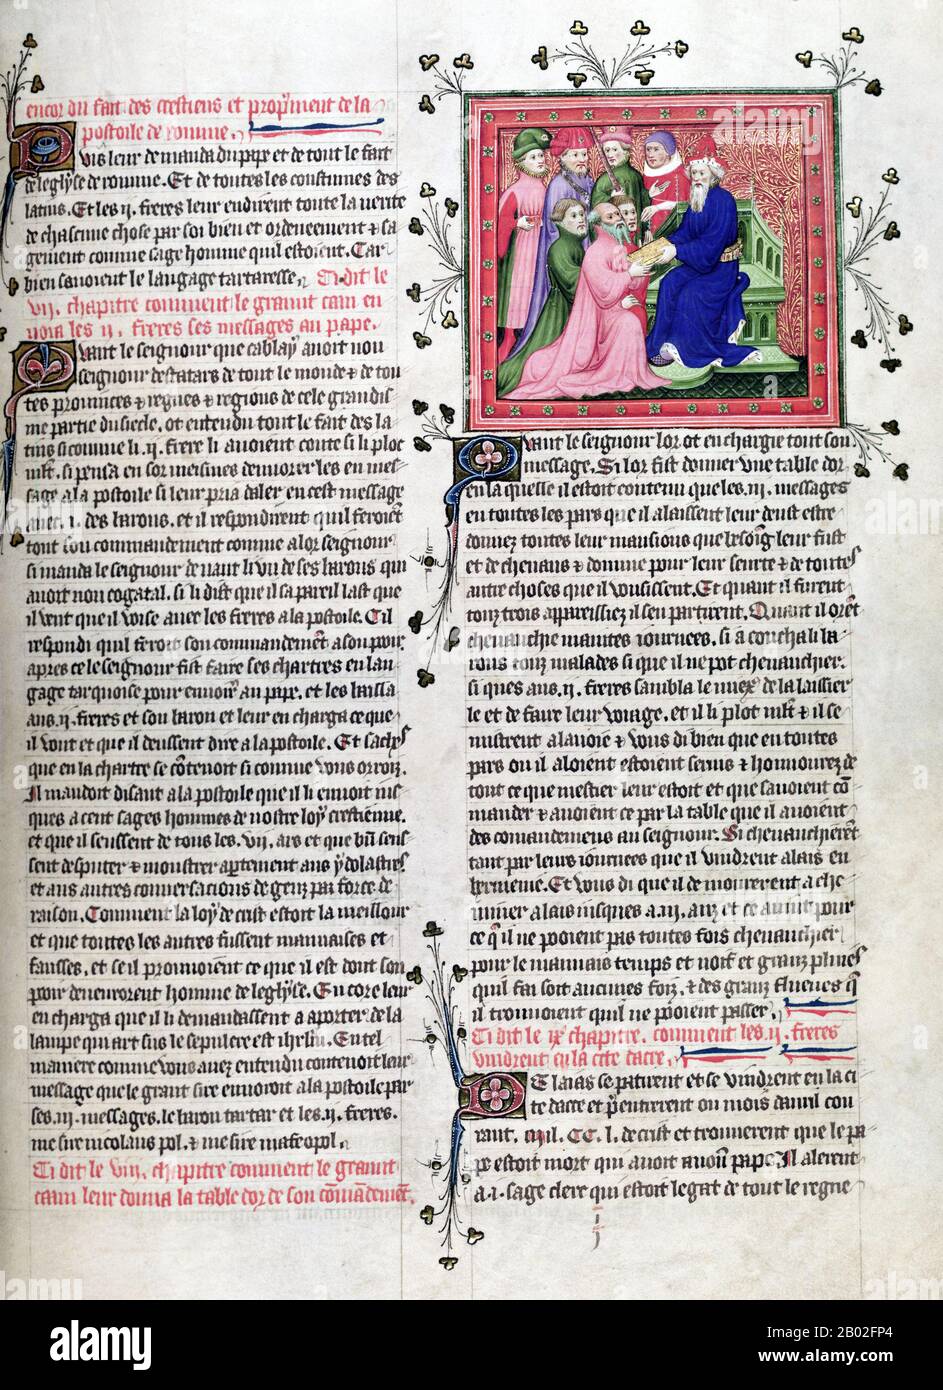 encor du fait des crestiens et propment de la
postoile de romme.
Puis leur demanda du pape et de tout le fait
de leglyse de romme. Et de toutes les coustumes des
latins. Et les .ij. freres leur endirent toute la verite
de chascune chose par soi bien et ordeneement et sa
gement comme sage homme quil estoient. Car
bien savoient le langage tartaresse. Ci dit le
vij. chapitre comment le grant caan en
voia les ij. freres ses messages au pape.
Quant le seignour que cablay avoit non
seignour des tatars de tout le monde et de tou
tes provinces et regnes et regions de cele grandis
me partie du siecle, ot entendu tout le fait des la
tins si comme li .ij. frere li avoient conte si li plot
mlt. si pensa en soi meismes denvoier les en mes
sage a la postoile si leur pria daler en cest message
avec .i. des barons. et il respondirent quil feroient
tout son commandement comme a lor seignour
si manda le seignour devant li un de ses barons qui
avoit non cogatal. si li dist que il sapareillast que
il veut que il voise avec les freres a la postoile. Cil
respondi quil feroit son commandement a son pour
apres ce le seignour fist faire ses chartres en lan
gage tarquoise pour envoier au pape. et les bailla
aus .ij. freres et son baron et leur en charga ce que
il vout et que il deussent dire a la postoile. Et sachs
que en la chartre se contenoit si comme vous orroiz.
Il mandoit disant a la postoile que il li envoit ius
ques a cent sages hommes de nostre loy crestienne.
et que il seussent de tous les .vij. ars et que bn seus
sent desputer et monstrer apertement aus ydolastres
et aus autres conversacions de genz par force de
raison. Comment la loy de crist estoit la meillour
et que toutes les autres fussent mauvaises et
fausses. et se il prouvoient ce que il est dont son
pooir devenroient homme de leglyse. Encore leur
en charga que il li demandassent a aporter de la
lampe qui art sus le sepulcre en ihrslm. En tel
maniere comme vous avez entendu contenoit leur
message que le grant sire envoioit a la postoile par
ses .iij. messages. le baron tartar et les .ij. freres.
mesire nicolaus pol. et mesire mafeo pol.
Ci dit le viij. chapitre comment le grant
caan leur donna la table dor de son commandement.
Quant le seignour lor ot en chargie tout son
message. Si lor fist donner une table dor
en la quelle il estoit contenu que les .iij. messages
en toutes les pars que il alaissent leur deust estre
donnez toutes leur mansions que besoing leur fust
et de chevaus et domme pour leur seurte et de toutes
autre choses que il vousissent. Et quant il furent
touz trois appareilliez il seu partirent. Quant il oret
chevauchie maintes iournees. si acouchali ba
rons touz malades si que il ne pot chevauchier.
si ques aus .ij. freres sambla le miex de la laissier
le et de faire leur voiage. et il li plot mlt et il se
mistrent a la voie et vous di bien que en toutes
pars ou il aloient estoient servis et honnourez de
tout ce que mestier leur estoit et que savoient com
mander et avoient ce par la table que il avoient
des comandemens au seignour. Si chevauchierent
tant par leurs iournees que il vindrent a lais en
hermenie. Et vous di que il demourerent a che
miner a lais iusques a .iij. anz et ce avint pour
ce qil ne pooient pas toutes fois chevauchier
pour le mauvais temps et noif et granz pluies
quil fai soit aucunes foiz. et des granz flueves q
il trouvoient quil ne pooient passer.
Ci dit le ix. chapitre. comment les .ij. freres
vindrent en la cite dacre.
De laias se patirent et se vindrent en la ci
te dacre et pentirerent ou mois davril cou
rant. mil. CC. l. de crist et trouverent que le pa
pe estoit mort qui avoit avoun pape. Il alerent
a .i. sage clerc qui estoit legat de tout le regne
alamy
Image ID: B02FP4
www.alamy.com